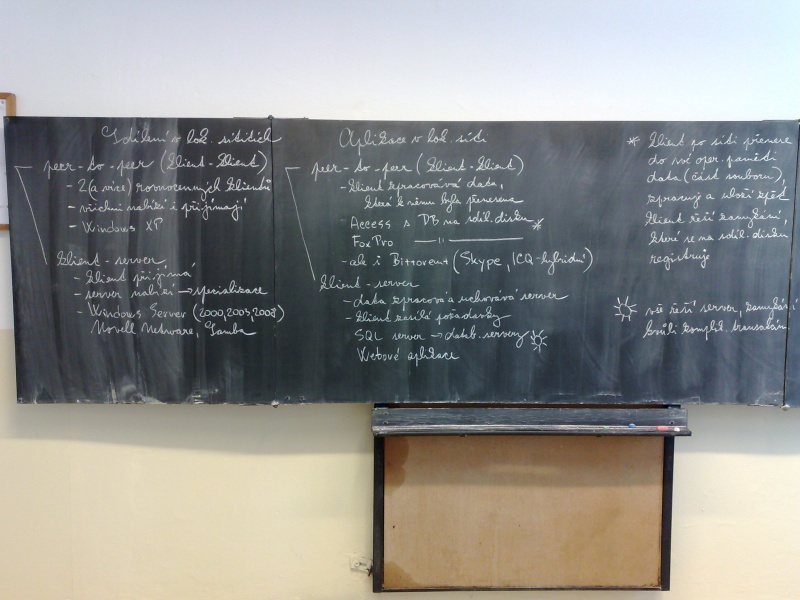 Sdílení v lok. sítích
peer-to-peer (Klient-Klient)
- 2 (a více) rovnocenných klientů
- všichni nabízí i přijímají
- Windows XP
Klient-server
- Klient přijímá
- server nabízí → specializace
- Windows Server (2000, 2003, 2008)
Novell Netware, Samba
Aplikace v lok. síti
peer-to-peer (Klient-Klient)
- Klient zpracovává data,
která k němu byla přenesena
Access s DB na sdíl. disku *
FoxPro —— 11 ——
- ale i Bittorent (Skype, ICQ-hybridní)
Klient-server
- data zpracová a uchovává server
- Klient zasílá požadavky
SQL server → datab. servery
Webové aplikace
* Klient po síti přenese
do své oper. paměti
data (část souboru),
zpracuje a uloží zpět
Klient řeší zamykání,
které se na sdíl. disku
registruje
vše řeší server, zamykání
kvůli komplet. transakcím